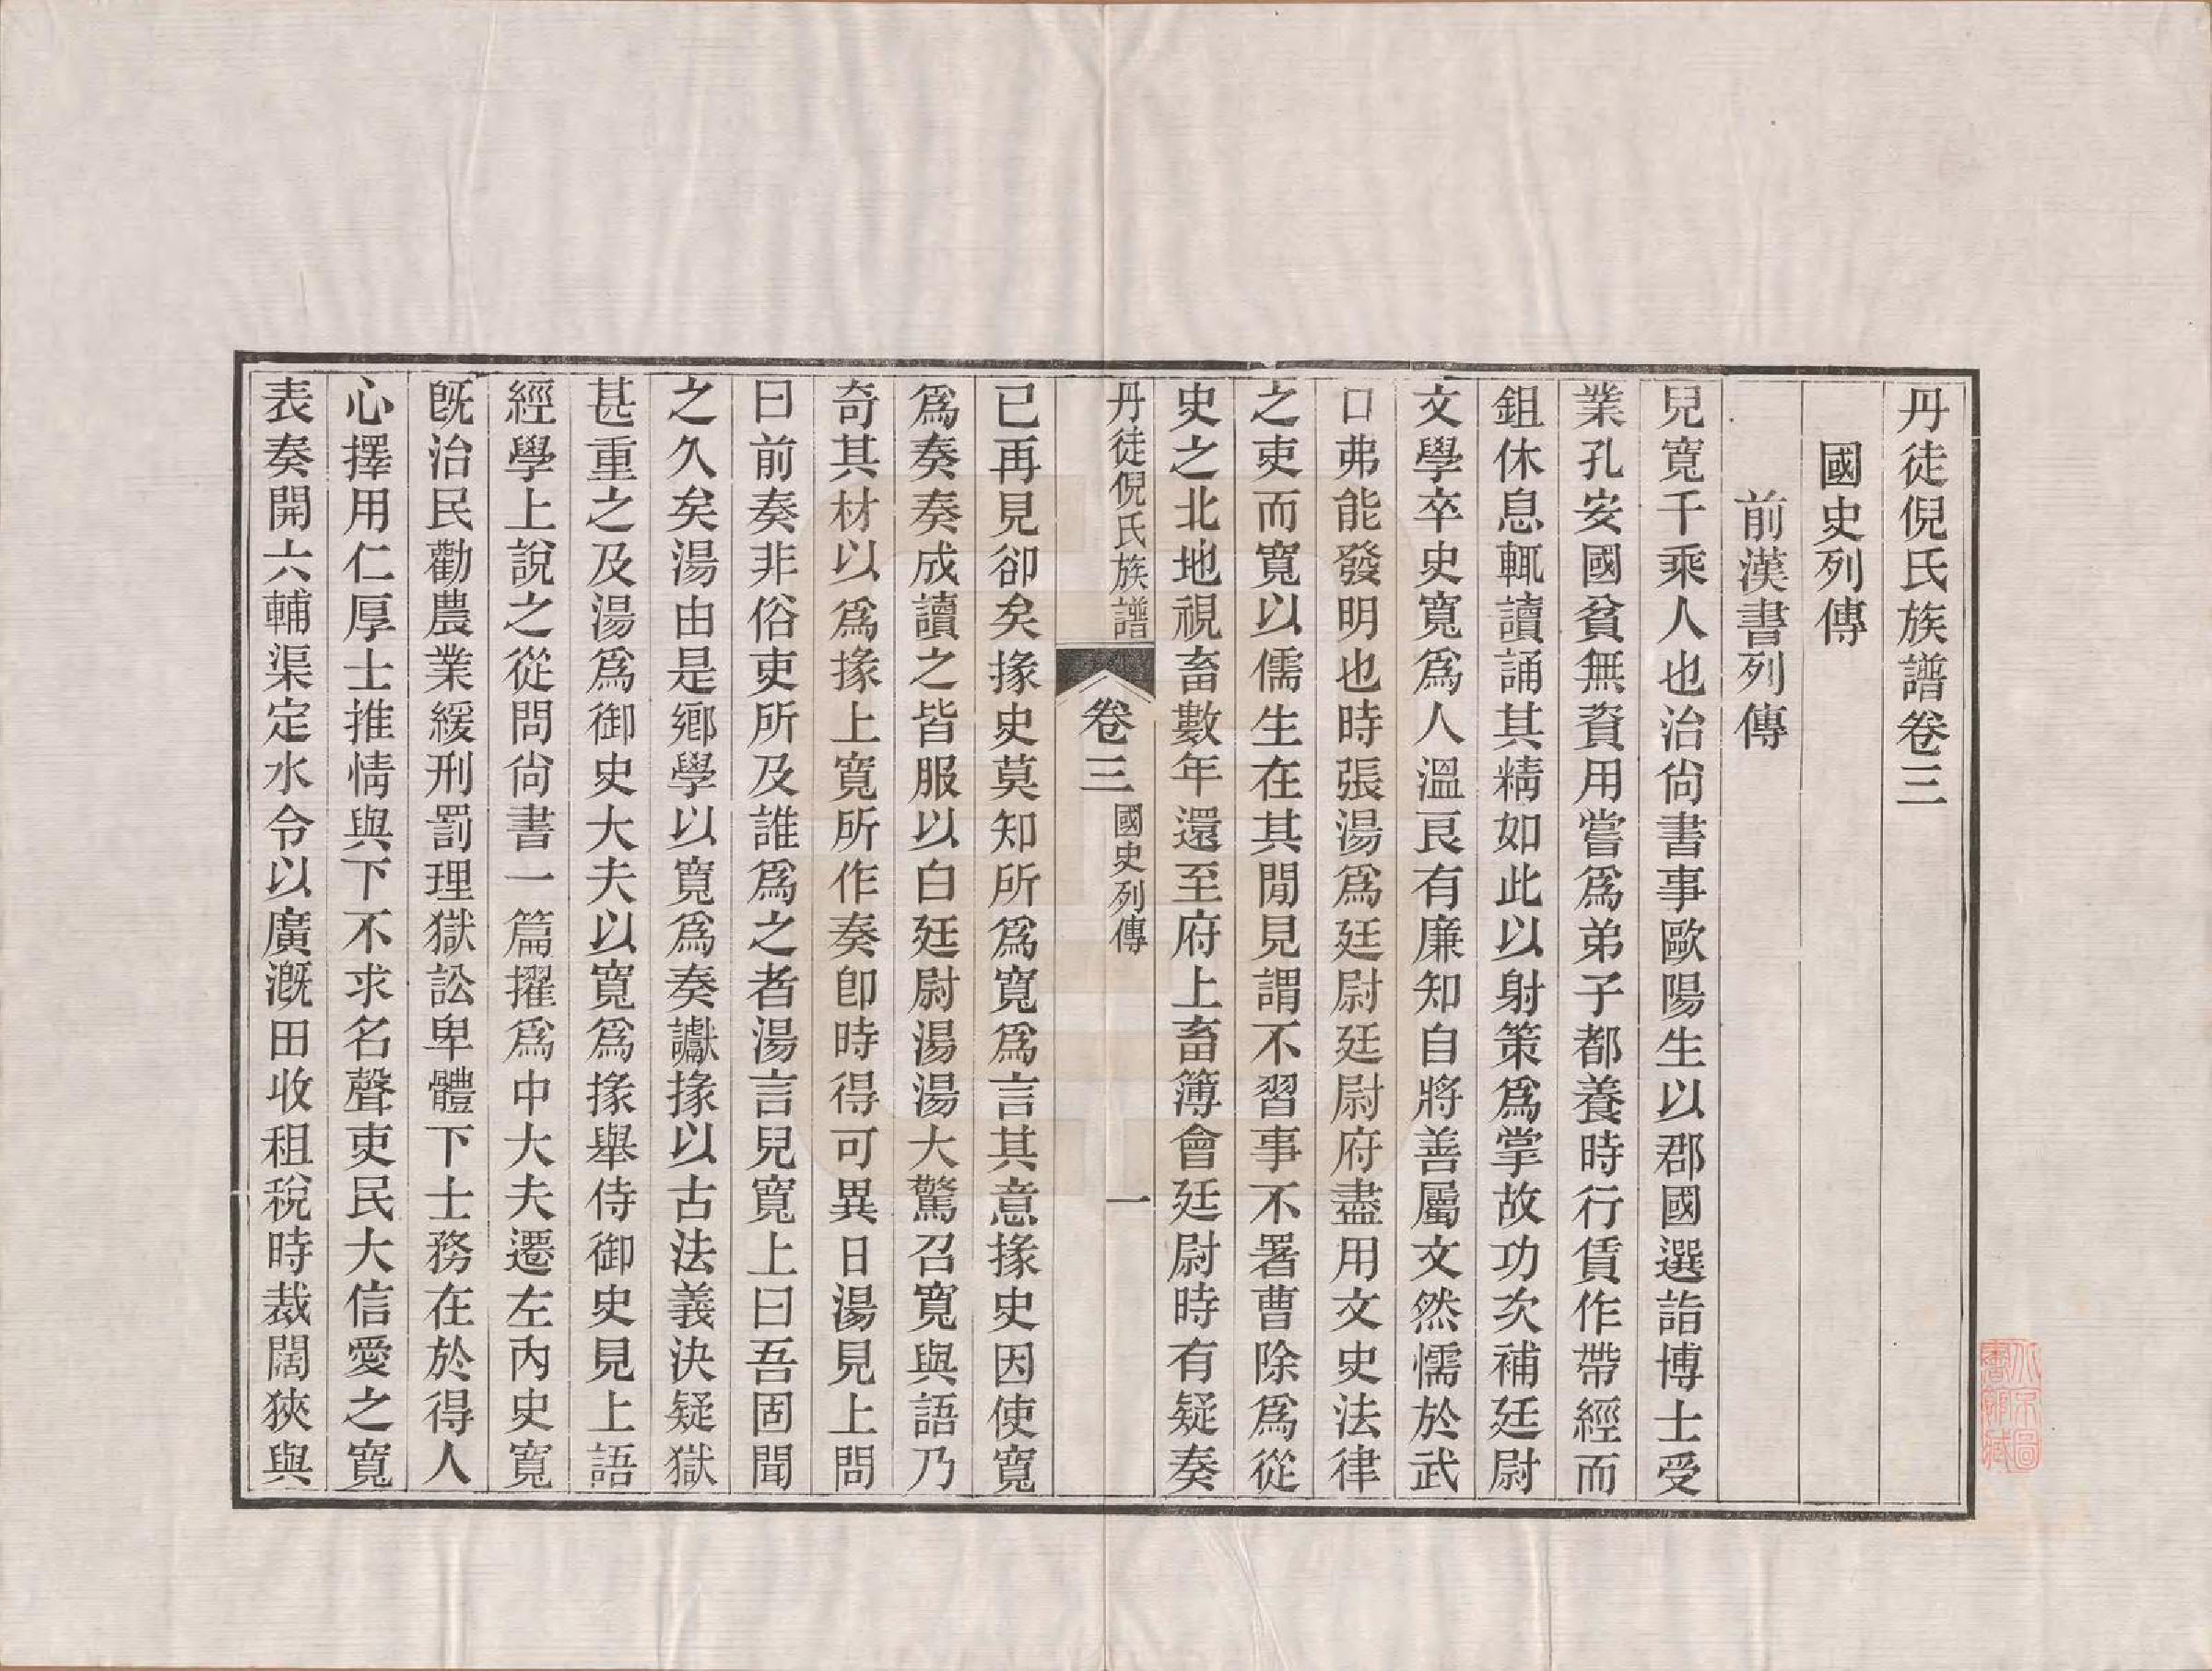 丹徒倪氏族譜卷三
國史列傳
前漢書列傳
兒寬千乘人也治尙書事歐陽生以郡國選詣博士受
業孔安國貧無資用嘗爲弟子都養時行賃作帶經而
鉏休息輒讀誦其精如此以射策爲掌故功次補廷尉
文學卒史寬爲人溫良有廉知自將善屬文然懦於武
口弗能發明也時張湯爲廷尉廷尉府盡用文史法律
之吏而寬以儒生在其閒見謂不習事不署曹除爲從
史之北地視畜數年還至府上畜簿會廷尉時有疑奏
丹徒倪氏族譜
卷三
國史列傳
一
已再見卻矣掾史莫知所爲寬爲言其意掾史因使寬
爲奏奏成讀之皆服以白廷尉湯湯大驚召寬與語乃
奇其材以爲掾上寬所作奏卽時得可異日湯見上問
曰前奏非俗吏所及誰爲之者湯言兒寬上曰吾固聞
之久矣湯由是鄉學以寬爲奏讞掾以古法義決疑獄
甚重之及湯爲御史大夫以寬爲掾舉侍御史見上語
經學上說之從問尙書一篇擢爲中大夫遷左內史寬
旣治民勸農業緩刑罰理獄訟卑體下士務在於得人
心擇用仁厚士推情與下不求名聲吏民大信愛之寬
表奏開六輔渠定水令以廣漑田收租稅時裁闊狹與